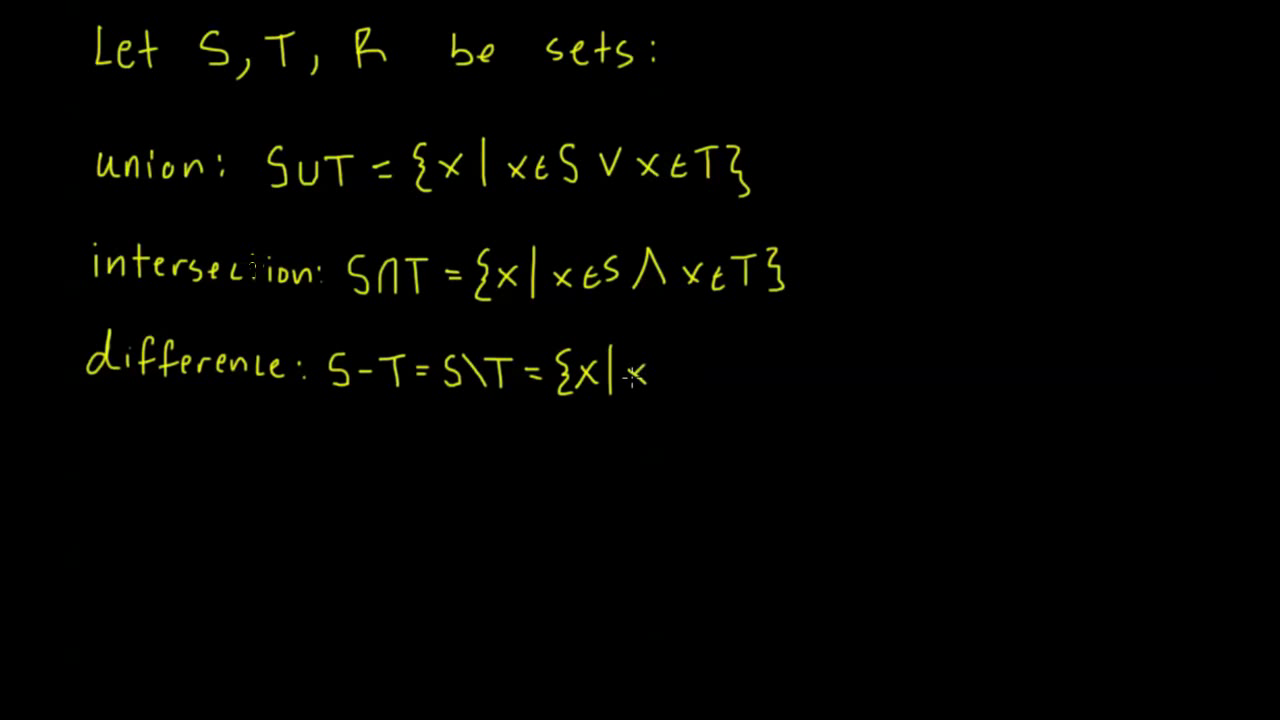 Let S, T, R be sets:
union: S∪T = {x | x∈S ∨ x∈T}
intersection: S∩T = {x | x∈S ∧ x∈T}
difference: S-T = S\T = {x | x